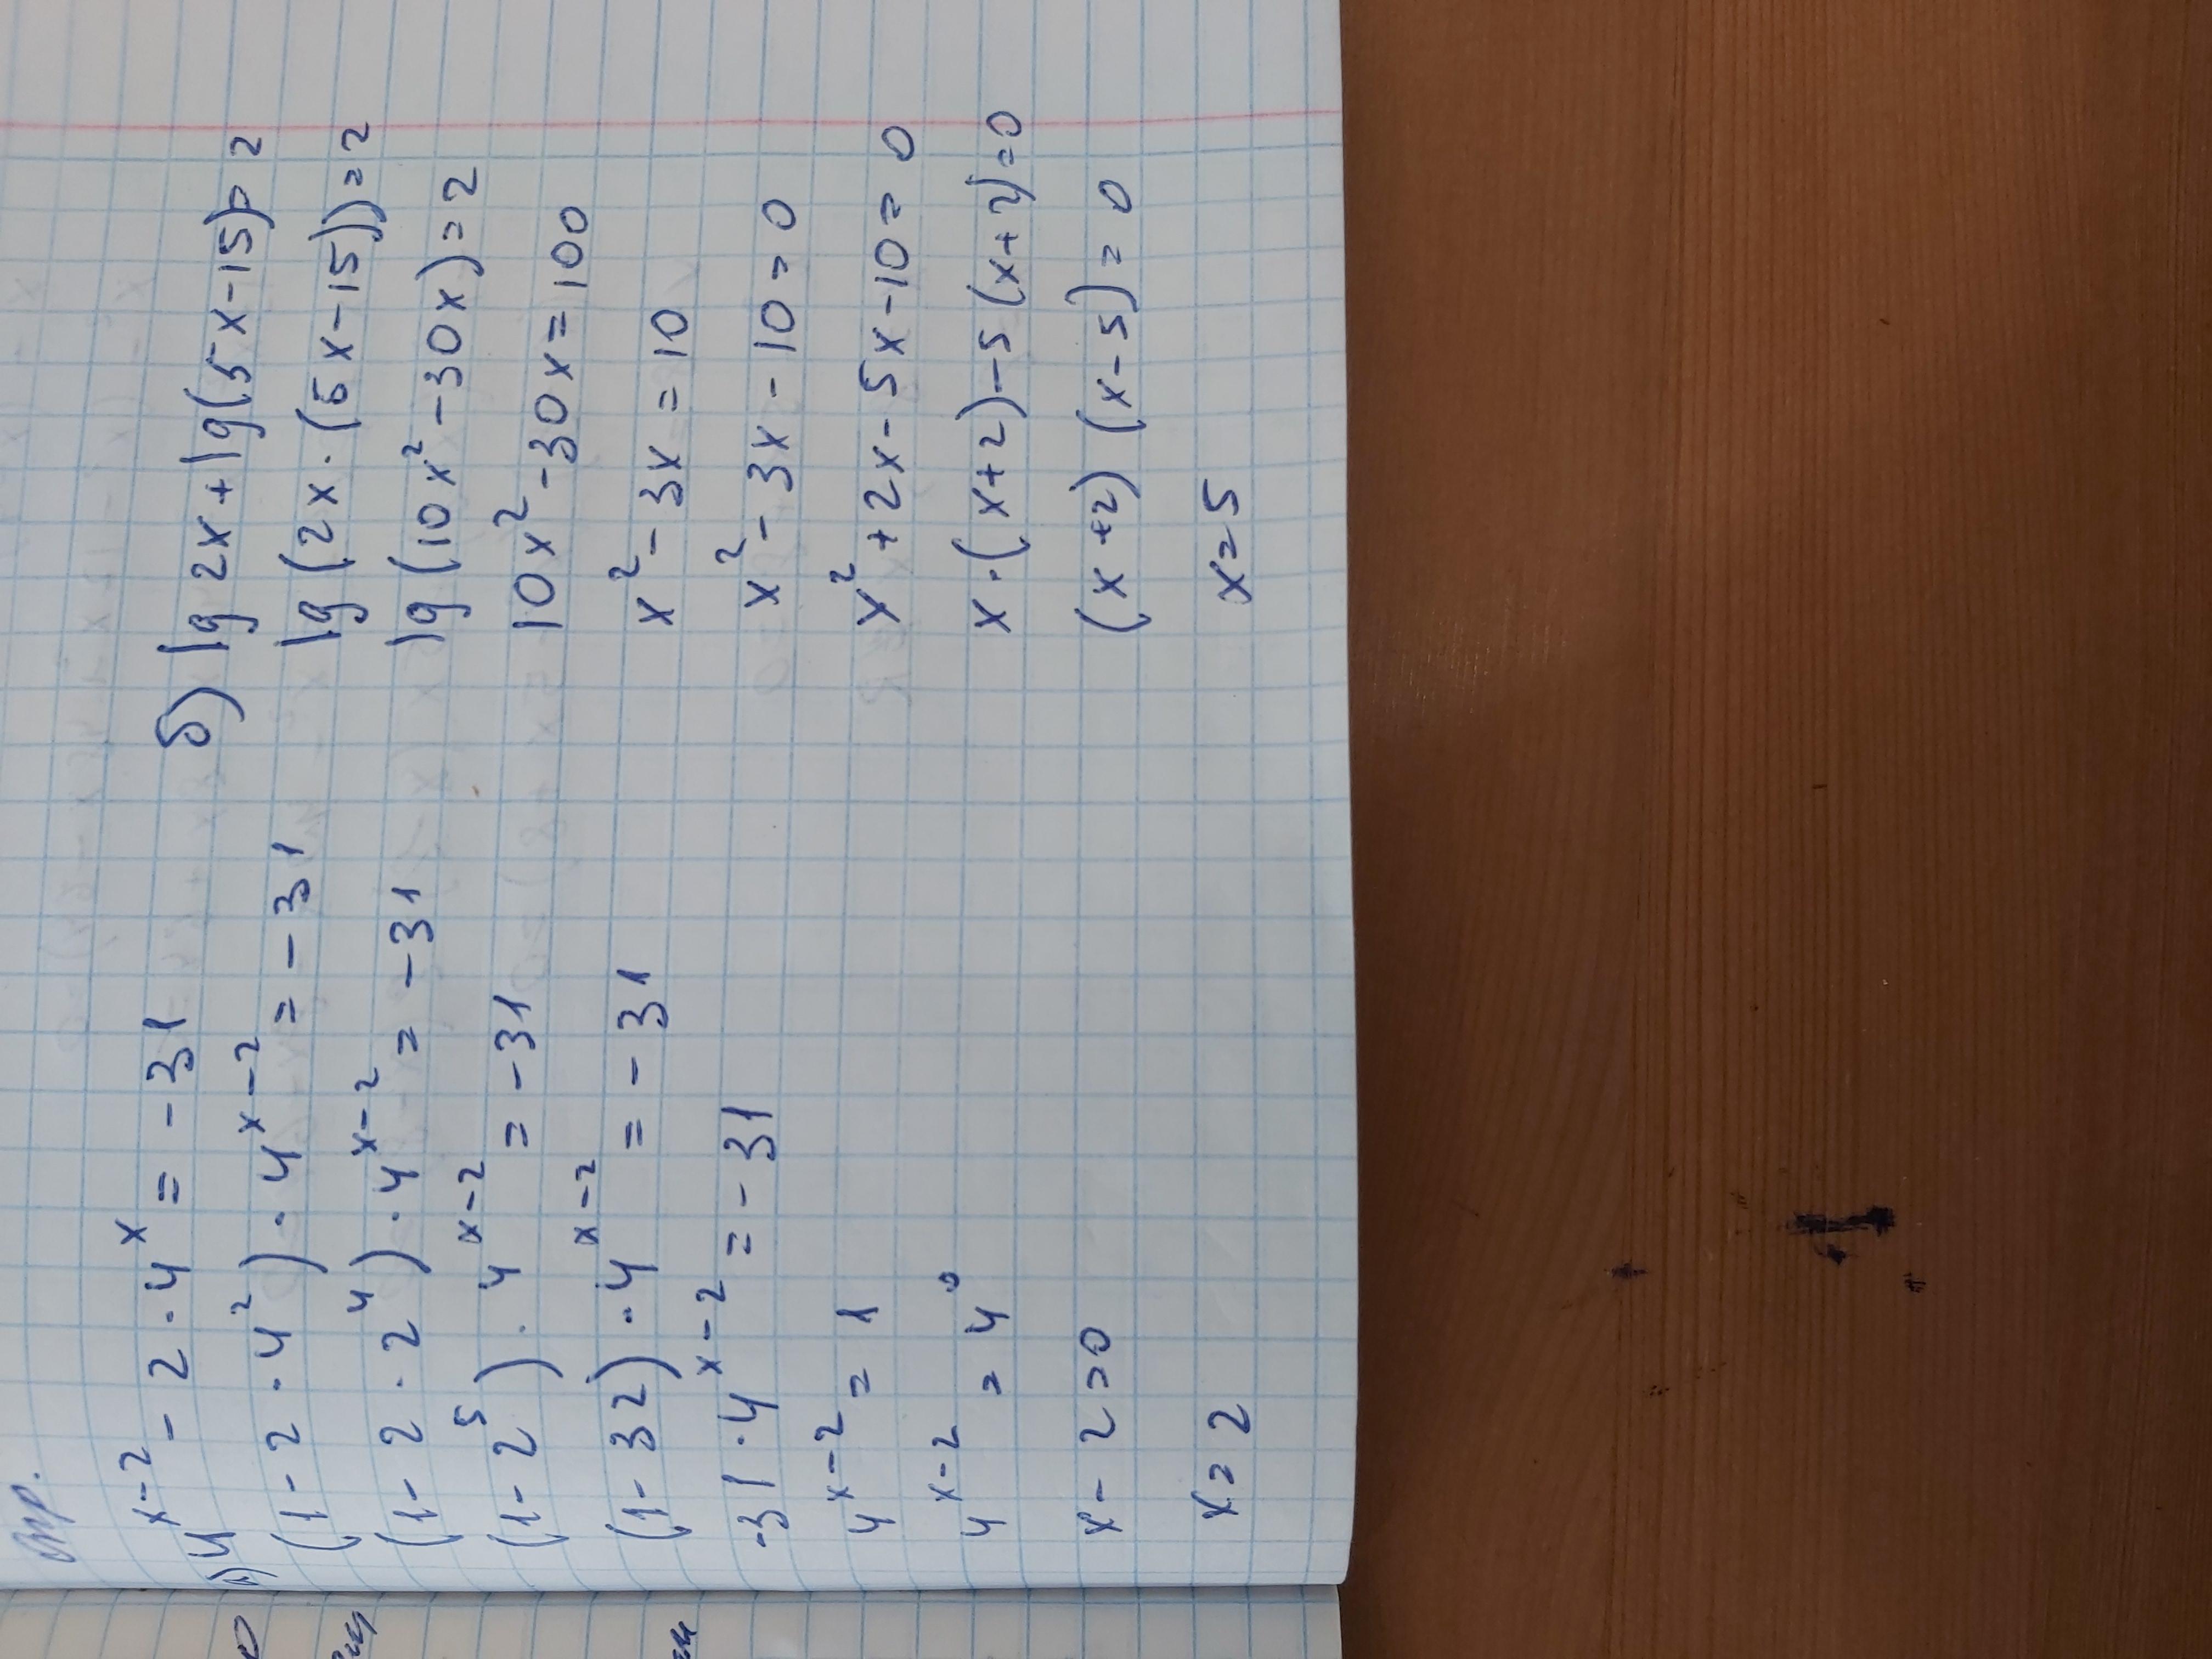 а) 4^(x-2) - 2 · 4^x = -31
(1 - 2 · 4²) · 4^(x-2) = -31
(1 - 2 · 2⁴) · 4^(x-2) = -31
(1 - 2⁵) · 4^(x-2) = -31
(1 - 32) · 4^(x-2) = -31
-31 · 4^(x-2) = -31
4^(x-2) = 1
4^(x-2) = 4⁰
x - 2 = 0
x = 2
б) lg 2x + lg(5x-15) = 2
lg(2x · (5x-15)) = 2
lg(10x² - 30x) = 2
10x² - 30x = 100
x² - 3x = 10
x² - 3x - 10 = 0
x² + 2x - 5x - 10 = 0
x · (x+2) - 5(x+2) = 0
(x+2) (x-5) = 0
x = 5